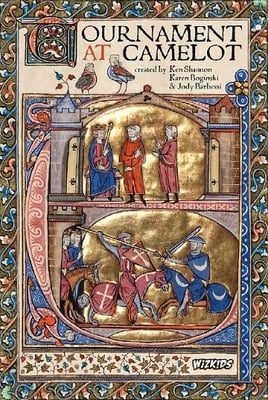 TOURNAMENT
AT CAMELOT
created by Ken Shannon
Karen Boginski
& Jody Barbessi
WIZKIDS